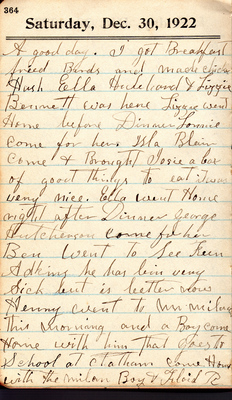 364
Saturday, Dec. 30, 1922
A good day. I got Breakfast
fried Birds and made
Hash Ella and Lizzie
Bennett was here Lizzie went
Home before Dinner Lonnie
come for her. Isla Blair
Come & Brought Josie a box
of good things to eat
very nice. Ella went Home
right after Dinner George
Hutcherson come for her
Ben went to See Fern
Adkins he has bin very
Sick but is better now
Henny went to
This morning and a Boy come
Home with him that Goes to
School at Chatham come Home
with the Milam Boy &